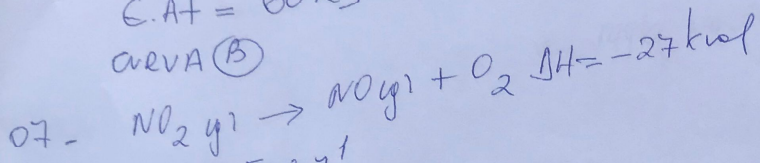 E.At =
CURVA B
07 - NO2 (g) → NO(g) + O2 ΔH = -27 kcal